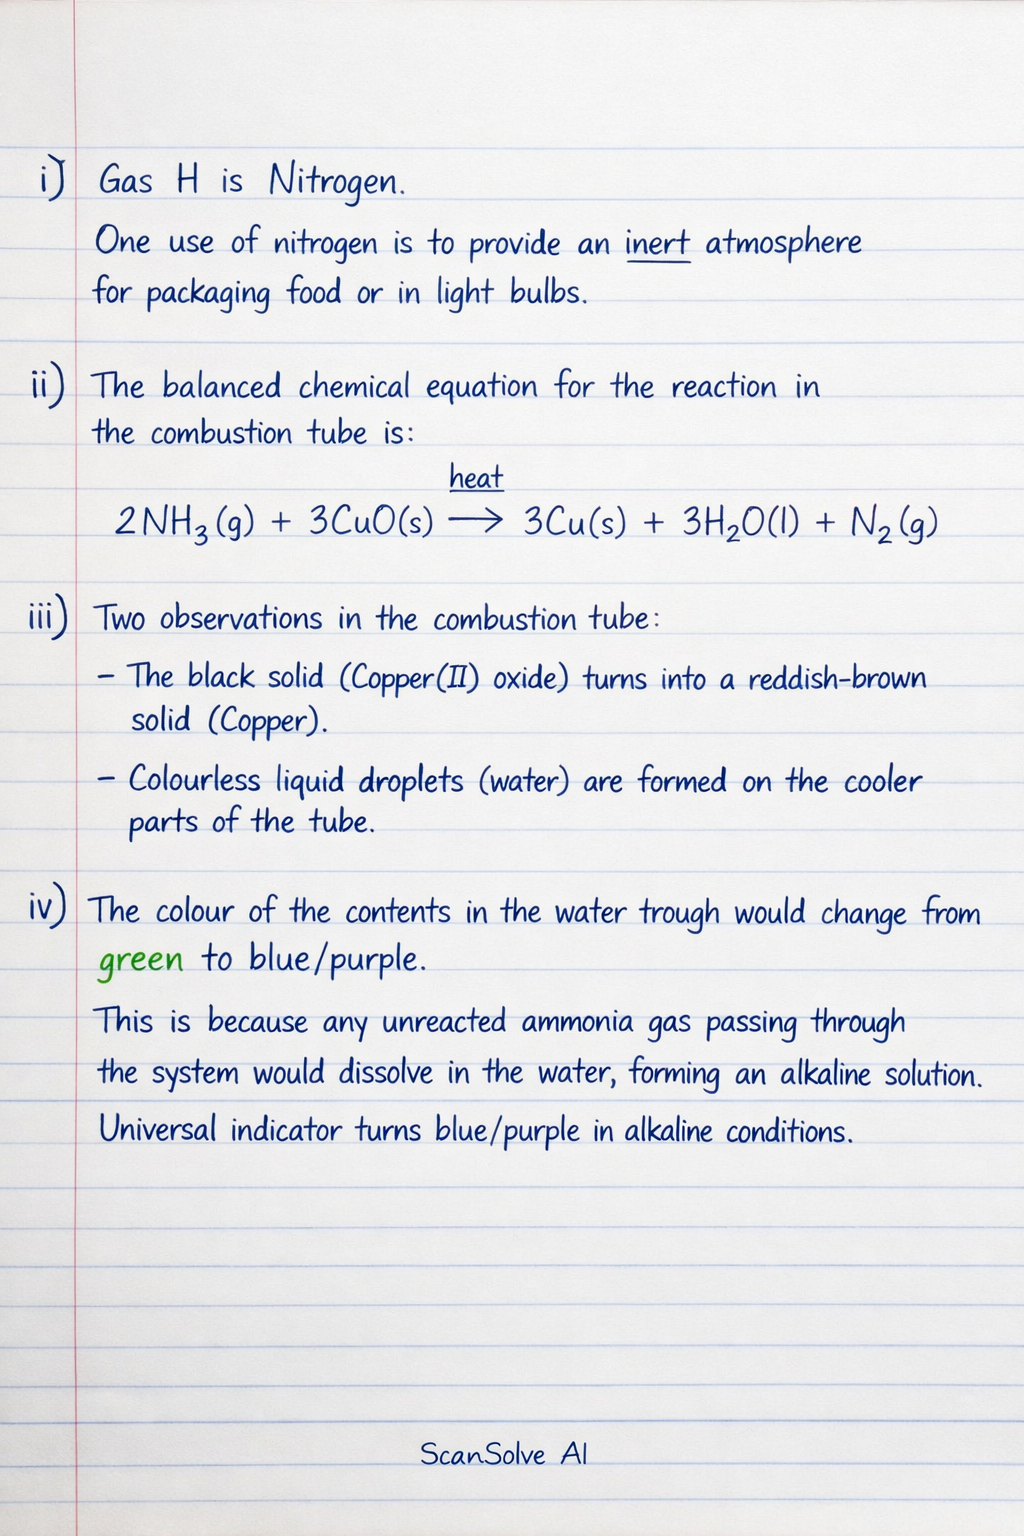 i) Gas H is Nitrogen.
One use of nitrogen is to provide an inert atmosphere
for packaging food or in light bulbs.
ii) The balanced chemical equation for the reaction in
the combustion tube is:
heat
2NH₃(g) + 3CuO(s) → 3Cu(s) + 3H₂O(l) + N₂(g)
iii) Two observations in the combustion tube:
– The black solid (Copper(II) oxide) turns into a reddish-brown
solid (Copper).
– Colourless liquid droplets (water) are formed on the cooler
parts of the tube.
iv) The colour of the contents in the water trough would change from
green to blue/purple.
This is because any unreacted ammonia gas passing through
the system would dissolve in the water, forming an alkaline solution.
Universal indicator turns blue/purple in alkaline conditions.
ScanSolve AI